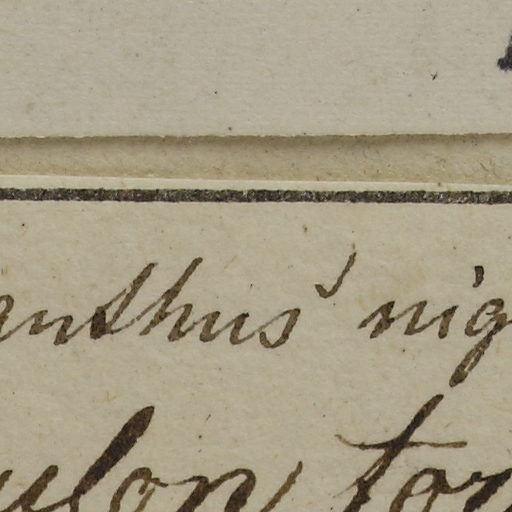 anthus nig
ulon tor